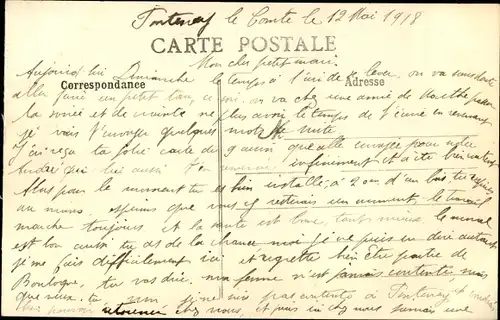 Fontenay le Comte le 12 Mai 1918
CARTE POSTALE
Mon cher petit mari
Aujourd'hui Dimanche le temps à l'air de lever on va sans doute
Correspondance
Adresse
aller faire un petit tour, ce soir on va chez une amie de Marthe passer
la soirée et de crainte ne plus avoir le temps de t'écrire en revenant
je vais t'envoyer quelques mots de suite
J'ai reçu ta jolie carte du 9 aussi que celle envoyée pour notre
André qui lui aussi t'en remercie infiniment et a été bien
Alors pour le moment tu es bien installé, à 2 ou d'un bon
au moins. espérons que vous y resterez un moment, le travail
marche toujours et la santé est bonne, tant mieux, le moral
est bon aussi tu as de la chance moi je ne puis en dire autant
je me fais difficilement ici et regrette bien être partie de
Boulogne, tu vas dire ma femme n'est jamais contente mais
que veux-tu, je ne suis pas contente à Fontenay
retourner chez nous, et puis ici chez nous jamais une